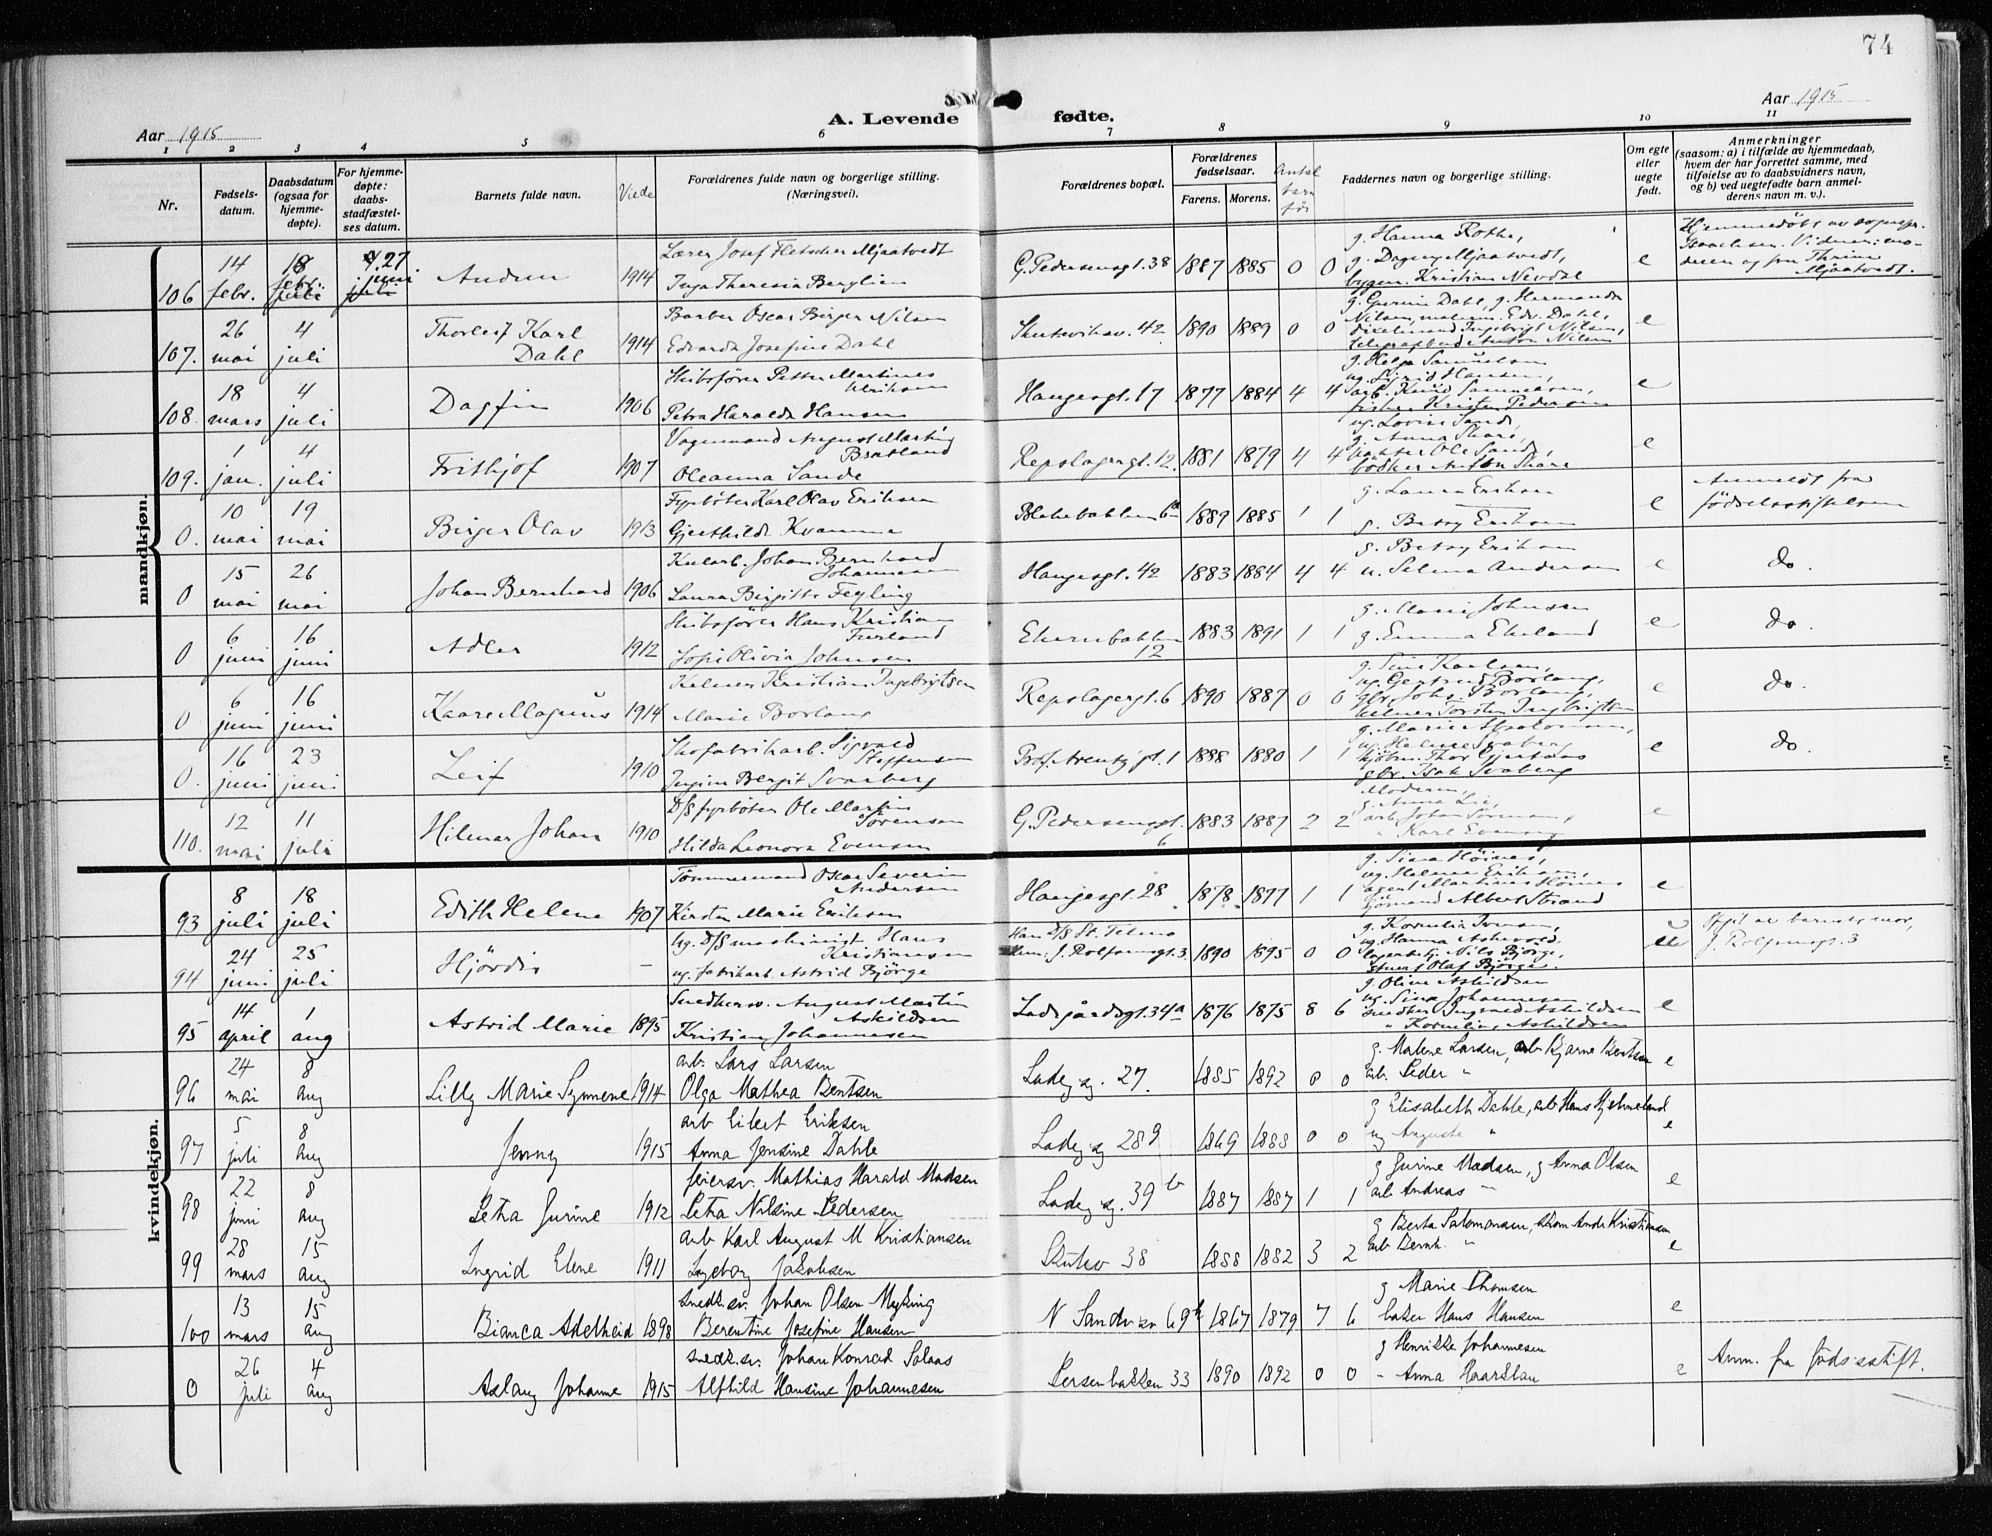 74
Aar 1915
A. Levende fødte.
Aar 1915
1 2 3 4 5 6 7 8 9 10 11
Nr.
Fødsels-
datum.
Daabsdatum
(ogsaa for
hjemme-
døpte).
For hjemme-
døpte:
daabs-
stadfæstel-
ses datum.
Barnets fulde navn.
Viede
Forældrenes fulde navn og borgerlige stilling.
(Næringsveil.)
Forældrenes bopæl.
Forældrenes
fødselsaar.
Farens. Morens.
Antal
barn
før
Faddernes navn og borgerlige stilling.
Om egte
eller
uegte
født.
Anmerkninger
(saasom: a) i tilfælde av hjemmedaab,
hvem der har forrettet samme, med
tilføielse av to daabsvidners navn,
og b) ved uegtefødte barn anmel-
derens navn m. v.).
mandkjøn.
106 14 febr. 18 febr. 27 juni Audun 1914
Lærer Josef Fletscher Mjaatvedt
Inga Theresia Berglien
G. Pedersensgt. 38 1887 1885 0 0
g. Hanna Rothe,
g. Dagny Mjaatvedt,
Kristian Nevdal
e
107. 26 mai 4 juli Thorleif Karl
Dahl 1914
Barber Oscar Birger Nilsen
Edvarda Josefine Dahl
Skutevikav. 42 1890 1889 0 0
g. Gurine Dahl, g. Hermanda
Nilsen, Edv. Dahl,
Ingebrigt Nilsen,
Anton Nilsen
e
108. 18 mars 4 juli Dagfin 1906
Skibsfører Petter Martinus
Ulriksen
Petra Haralda Hansen
Haugesgt. 17 1877 1884 4 4
g. Helga Samuelsen
ug. Sigrid Hansen,
arb. Knud Samuelsen,
fisker Kristen Pedersen
e
109. 1 jan. 4 juli Frithjof 1907
Vognmand August Martin
Bratland
Oleanna Sande
Repslagergt. 12. 1881 1879 4 4
ug. Lovise Sande,
g. Anna Skare,
Ole Sande,
bødker Anton Skare
e
0. 10 mai 19 mai Birger Olav 1913
Fyrbøter Karl Olav Eriksen
Gjerthilde Kvamme
Blekebakken 6a 1889 1885 1 1
g. Laura Eriksen
g. Betsy Eriksen
e
Anmeldt fra
fødselsstiftelsen
0 15 mai 26 mai Johan Bernhard 1906
Kularb. Johan Bernhard
Johannesen
Laura Birgitte Fegling
Haugesgt. 42 1883 1884 4 4
g. Betsy Eriksen
u. Selma Andersen
e
do.
0 6 juni 16 juni Adler 1912
Skibsfører Hans Kristian
Furland
Sofie Olivia Johnsen
Ekernbakken
12
1883 1891 1 1
g. Marie Johnsen
g. Emma Ekeland
e
do.
0. 6 juni 16 juni Kaare Magnus 1914
Kelner Kristian Ingebrigtsen
Marie Borlaug
Repslagergt. 6 1890 1887 0 0
g. Sine Karlsen,
ug. Gertrud Borlaug,
Johs. Borlaug,
kelner Torsten Ingbrigtsen
e
do.
0. 16 juni 23 juni Leif 1910
Skofabrikarb. Sigvald
Steffensen
Bergit Svarberg
Prof. Arentz gt. 1 1888 1880 1 1
g. Marie Absalonsen,
Thor Gjertsen
Isak Svaberg
e
do.
110. 12 mai 11 juli Hilmar Johan 1910
D/S fyrbøter Ole Martin
Sørensen
Hilda Leonora Evensen
G. Pedersensgt.
6
1883 1887 2 2
Moderen,
g. Anna Lie,
arb. Johan Sørensen,
" Karl Evensen
e
kvindekjøn.
93 8 juli 18 juli Edith Helene 1907
Tømmermand Oscar Severin
Andersen
Kirsten Marie Eriksen
Haugesgt. 28 1878 1877 1 1
g. Sina Høines,
ug. Helene Eriksen,
agent Martinus Høines
Albert Strand
e
94 24 juni 25 juli Hjördis –
ug. D/S maskinist Hans
Kristiansen
ug. fabrikarb. Astrid Bjørge
Han D/S St. Telmo
Hun: J. Rolfsensgt. 3. 1890 1895 0 0
g. Kornelia Iversen,
ug. Hanna
Nils Bjørge,
Olaf Bjørge.
u
Opgit av barnets mor,
J. Rolfsensgt. 3
95 14 april 1 aug Astrid Marie 1895
Snedkersv. August Martin
Askildsen
Kristian Johannesen
Ladegårdsgt. 34a 1876 1875 8 6
g. Oline Askildsen
ug. Sina Johannesen
snedker Ingvald Askildsen
" Kornelius Askildsen
e
96 24 mai 8 aug Lilly Marie Synnøve 1914
arb. Lars Larsen
Olga Mathea Bentsen
Ladeg sg. 27. 1885 1892 0 0
g. Malene Larsen, arb Bjarne Bentsen
arb. Peder "
e
97 5 juli 8 aug Jenny 1915
arb Eilert Eriksen
Anna Jensine Dahle
Ladeg sg 28 1869 1888 0 0
g Elisabeth Dahle, arb Hans Hjelmeland
ug Augusta "
e
98 22 juni 8 aug Petra Gurine 1912
feiersv. Mathias Harald Madsen
Petra Nilsine Pedersen
Ladeg sg. 39 b 1887 1887 1 1
g Gurine Madsen, g Anna Olsen
arb Andreas "
e
99 28 mars 15 aug Ingrid Elene 1911
arb Karl August M Kristiansen
Ingeborg Jakobsen
Skutev 38 1888 1882 3 2
g Berta Salomonsen, skom Andr Kristiansen
arb Bernh. "
e
100 13 mars 15 aug Bianca Adelheid 1898
snedk.sv. Johan Olsen Myking
Berentine Josefine Hansen
N Sandv 69 b 1867 1879 7 6
g Marie Thomsen
baker Hans Hansen
e
0 26 juli 4 aug Aslaug Johanne 1915
snedk.sv. Johan Konrad Salaas
Alfhild Hansine Johannesen
Persenbakken 33 1890 1892 0 0
g Henrikke Johannesen
– Anna Haarklau
e
Anm. fra fødselsstift.